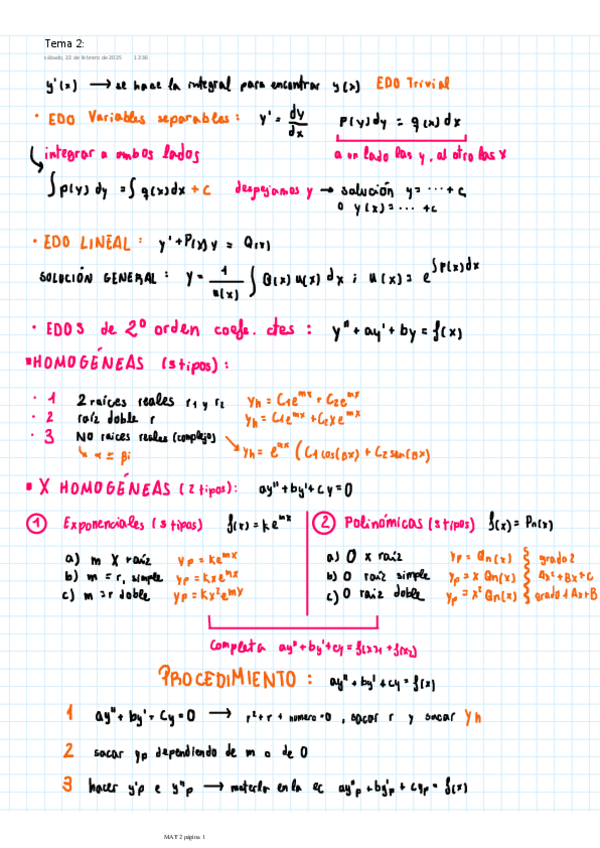 Tema 2:
sábado, 22 de febrero de 2025 12:36
y'(x) → se hace la integral para encontrar y(x) EDO Trivial
· EDO Variables separables: y' = dy/dx P(y)dy = q(x)dx
integrar a ambos lados a un lado las y, al otro las x
∫p(y)dy = ∫q(x)dx + C despejamos y → solución y = ... + c,
o y(x) = ... + c
· EDO LINEAL: y' + P(x)y = Q(x)
SOLUCIÓN GENERAL: y = 1/u(x) ∫ Q(x) u(x) dx ; u(x) = e^∫P(x)dx
· EDOS de 2º orden coefe. ctes: y" + ay' + by = f(x)
HOMOGÉNEAS (3 tipos):
· 1 2 raíces reales r1 y r2 yh = C1e^mx + C2e^mx
· 2 raíz doble r yh = C1e^mx + C2xe^mx
· 3 NO raíces reales (complejo) → yh = e^αx (C1cos(βx) + C2sen(βx))
↳ α ± βi
X HOMOGÉNEAS (2 tipos): ay" + by' + cy = 0
① Exponenciales (3 tipos) f(x) = ke^mx
a) m X raíz yp = ke^mx
b) m = r, simple yp = kxe^mx
c) m = r doble yp = kx²e^mx
② Polinómicas (3 tipos) f(x) = Pn(x)
a) 0 x raíz yp = Qn(x) grado 2
b) 0 raíz simple yp = x Qn(x) Ax² + Bx + C
c) 0 raíz doble yp = x² Qn(x) grado 1 Ax+B
Completa ay" + by' + cy = f(x)1 + f(x2)
PROCEDIMIENTO: ay" + by' + cy = f(x)
1 ay" + by' + Cy = 0 → r² + r + numero = 0, sacar r y sacar yh
2 sacar yp dependiendo de m o de 0
3 hacer y'p e y"p → meterlo en la ec ay"p + by'p + cyp = f(x)
MAT 2 página 1